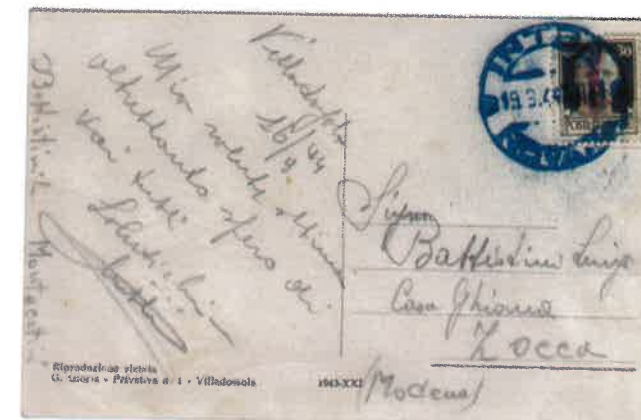 Villadossola
16/9/44
Mia salute ottima
altrettanto spero di
voi tutti
Saluti
Battistini
INTRA
19.9.44
30
Signor
Battistini Luigi
Casa Ghiana
Zocca
(Modena)
Riproduzione vietata
G. - Privativa n. 1 - Villadossola
1943-XXI